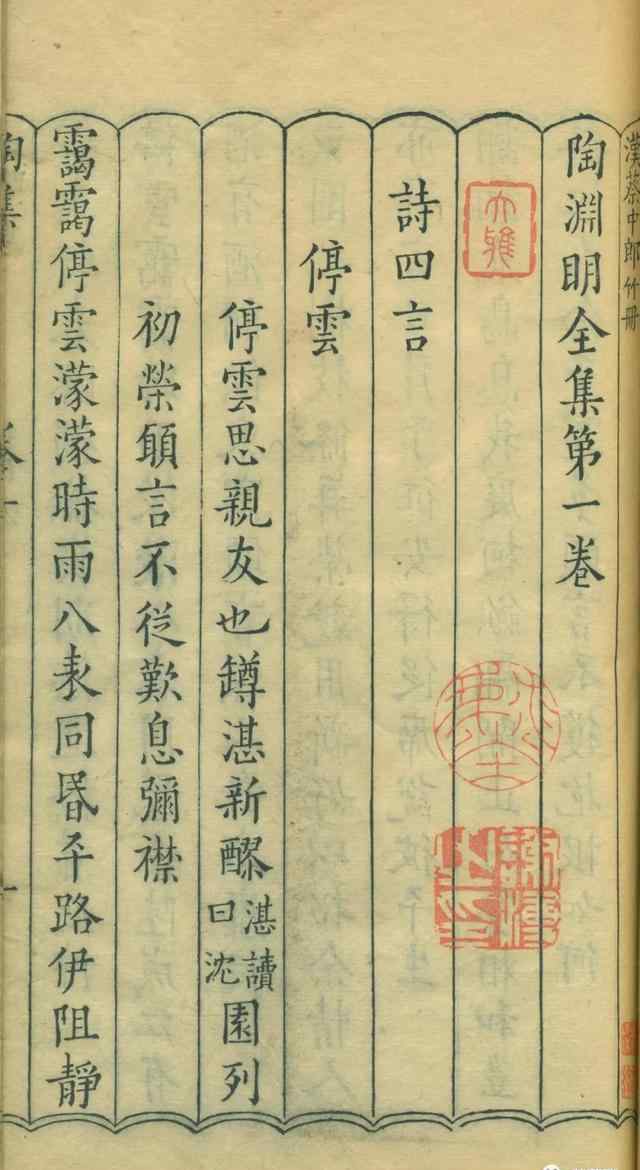 漢蔡中郎竹冊
陶淵明全集第一卷
大雅
詩四言
停雲
停雲思親友也罇湛新醪湛讀曰沈園列
初榮願言不從歎息彌襟
靄靄停雲濛濛時雨八表同昏平路伊阻靜
陶集
卷一